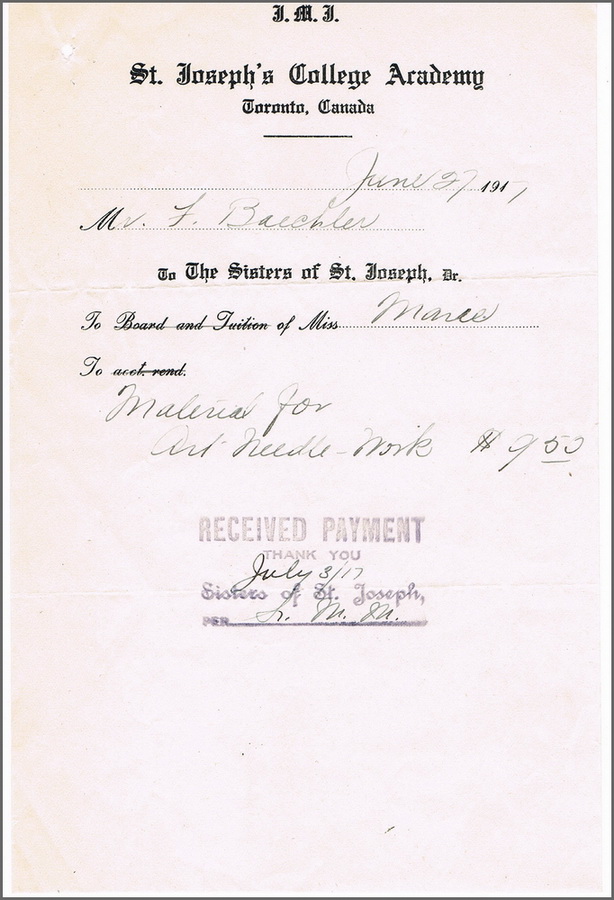 J. M. J.
St. Joseph's College Academy
Toronto, Canada
June 27 1917
Mr. F. Baechler
To The Sisters of St. Joseph, Dr.
To Board and Tuition of Miss Marie
To acct. rend.
Material for
Art Needle-Work $9.50
RECEIVED PAYMENT
THANK YOU
July 3/17
Sisters of St. Joseph,
PER Sr. M. M.